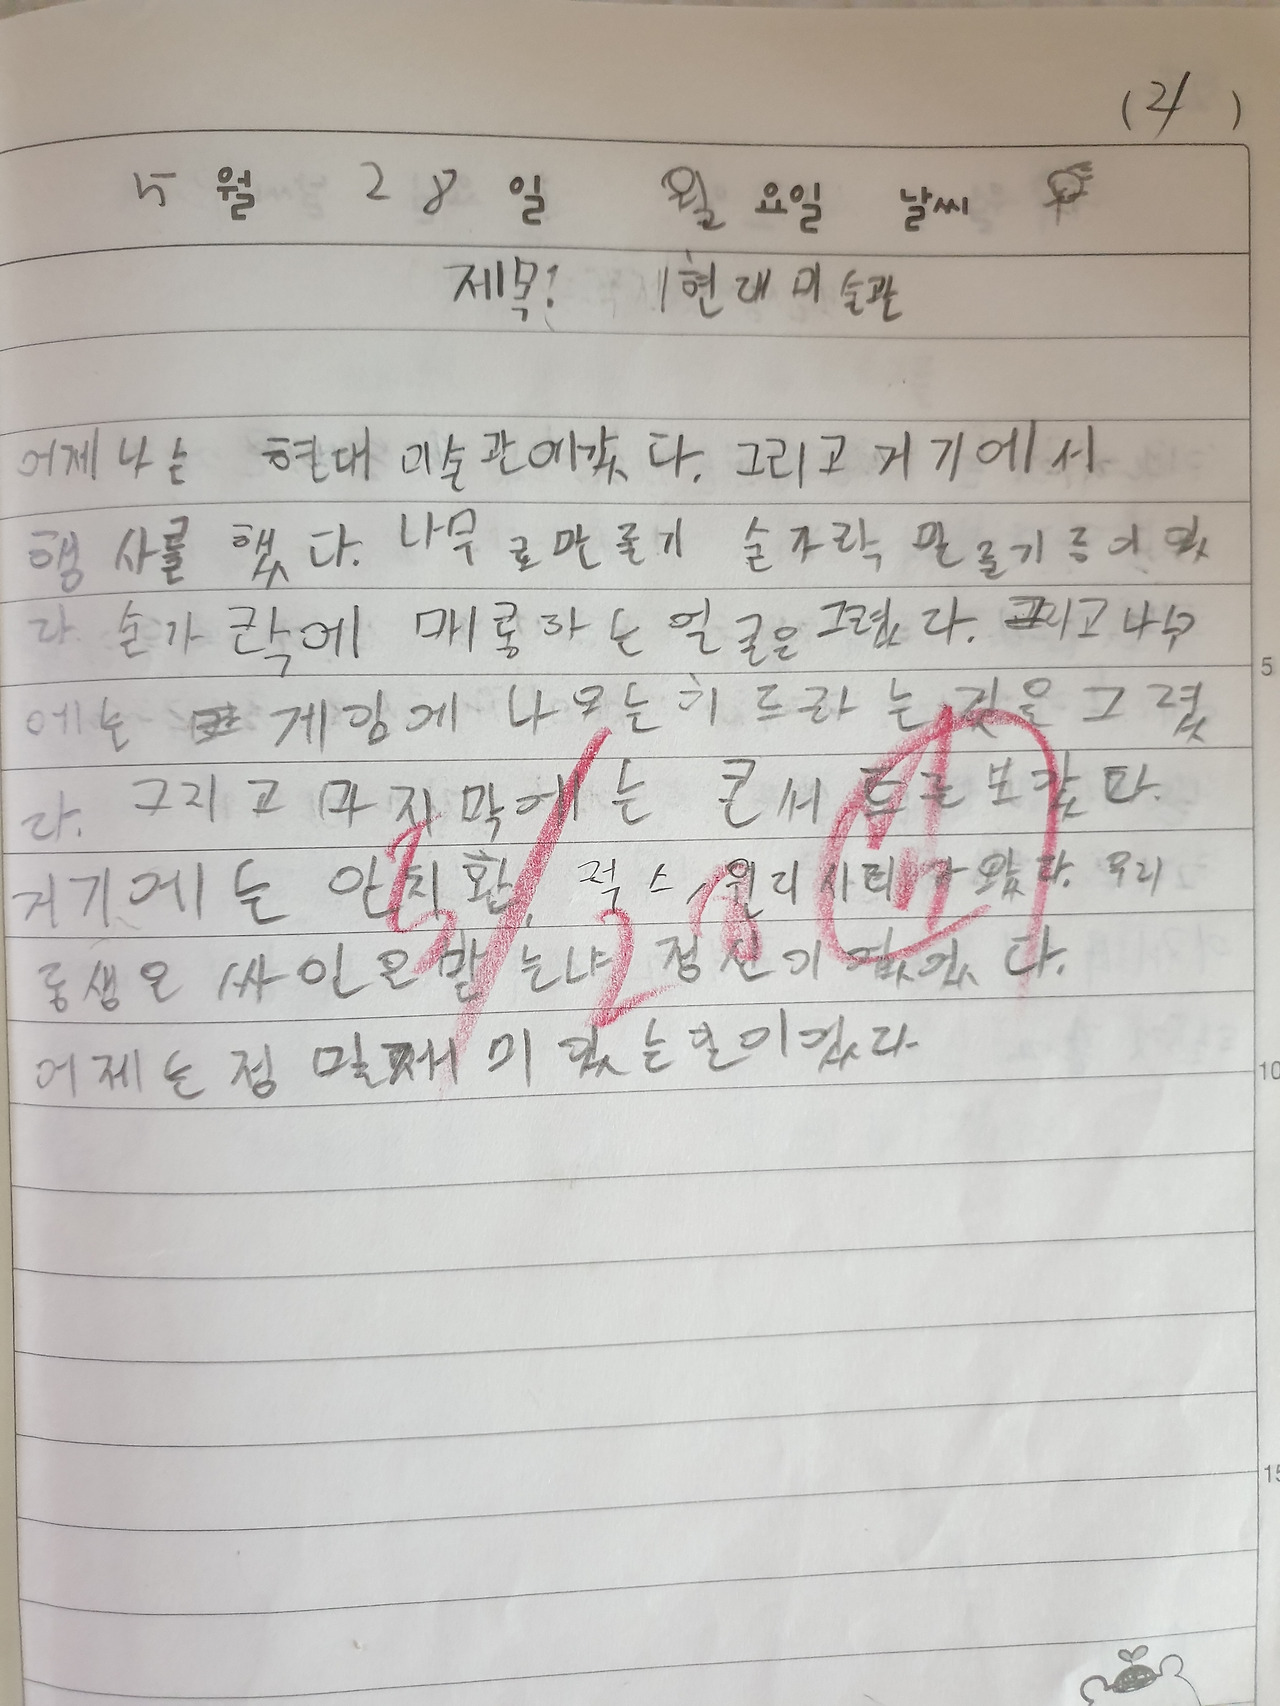 (21)
5월 28일 월요일 날씨
제목! 현대미술관
어제나는 현대 미술관에갔다. 그리고 거기에서
행사를 했다. 나무로만들기 숟가락 만들기등이있
다 숟가락에 메롱하는 얼굴은그렸다. 그리고 나무
에는 게임에 나오는히드라는것을 그렸
다. 그리고 마지막에는 콘서트를보았다.
거기에는 안치환, 적스, 윈리사티가왔다. 우리
동생은 싸인은받는냐 정신이없었다.
어제는정말재미있는날이었다
5/28
5
10
15